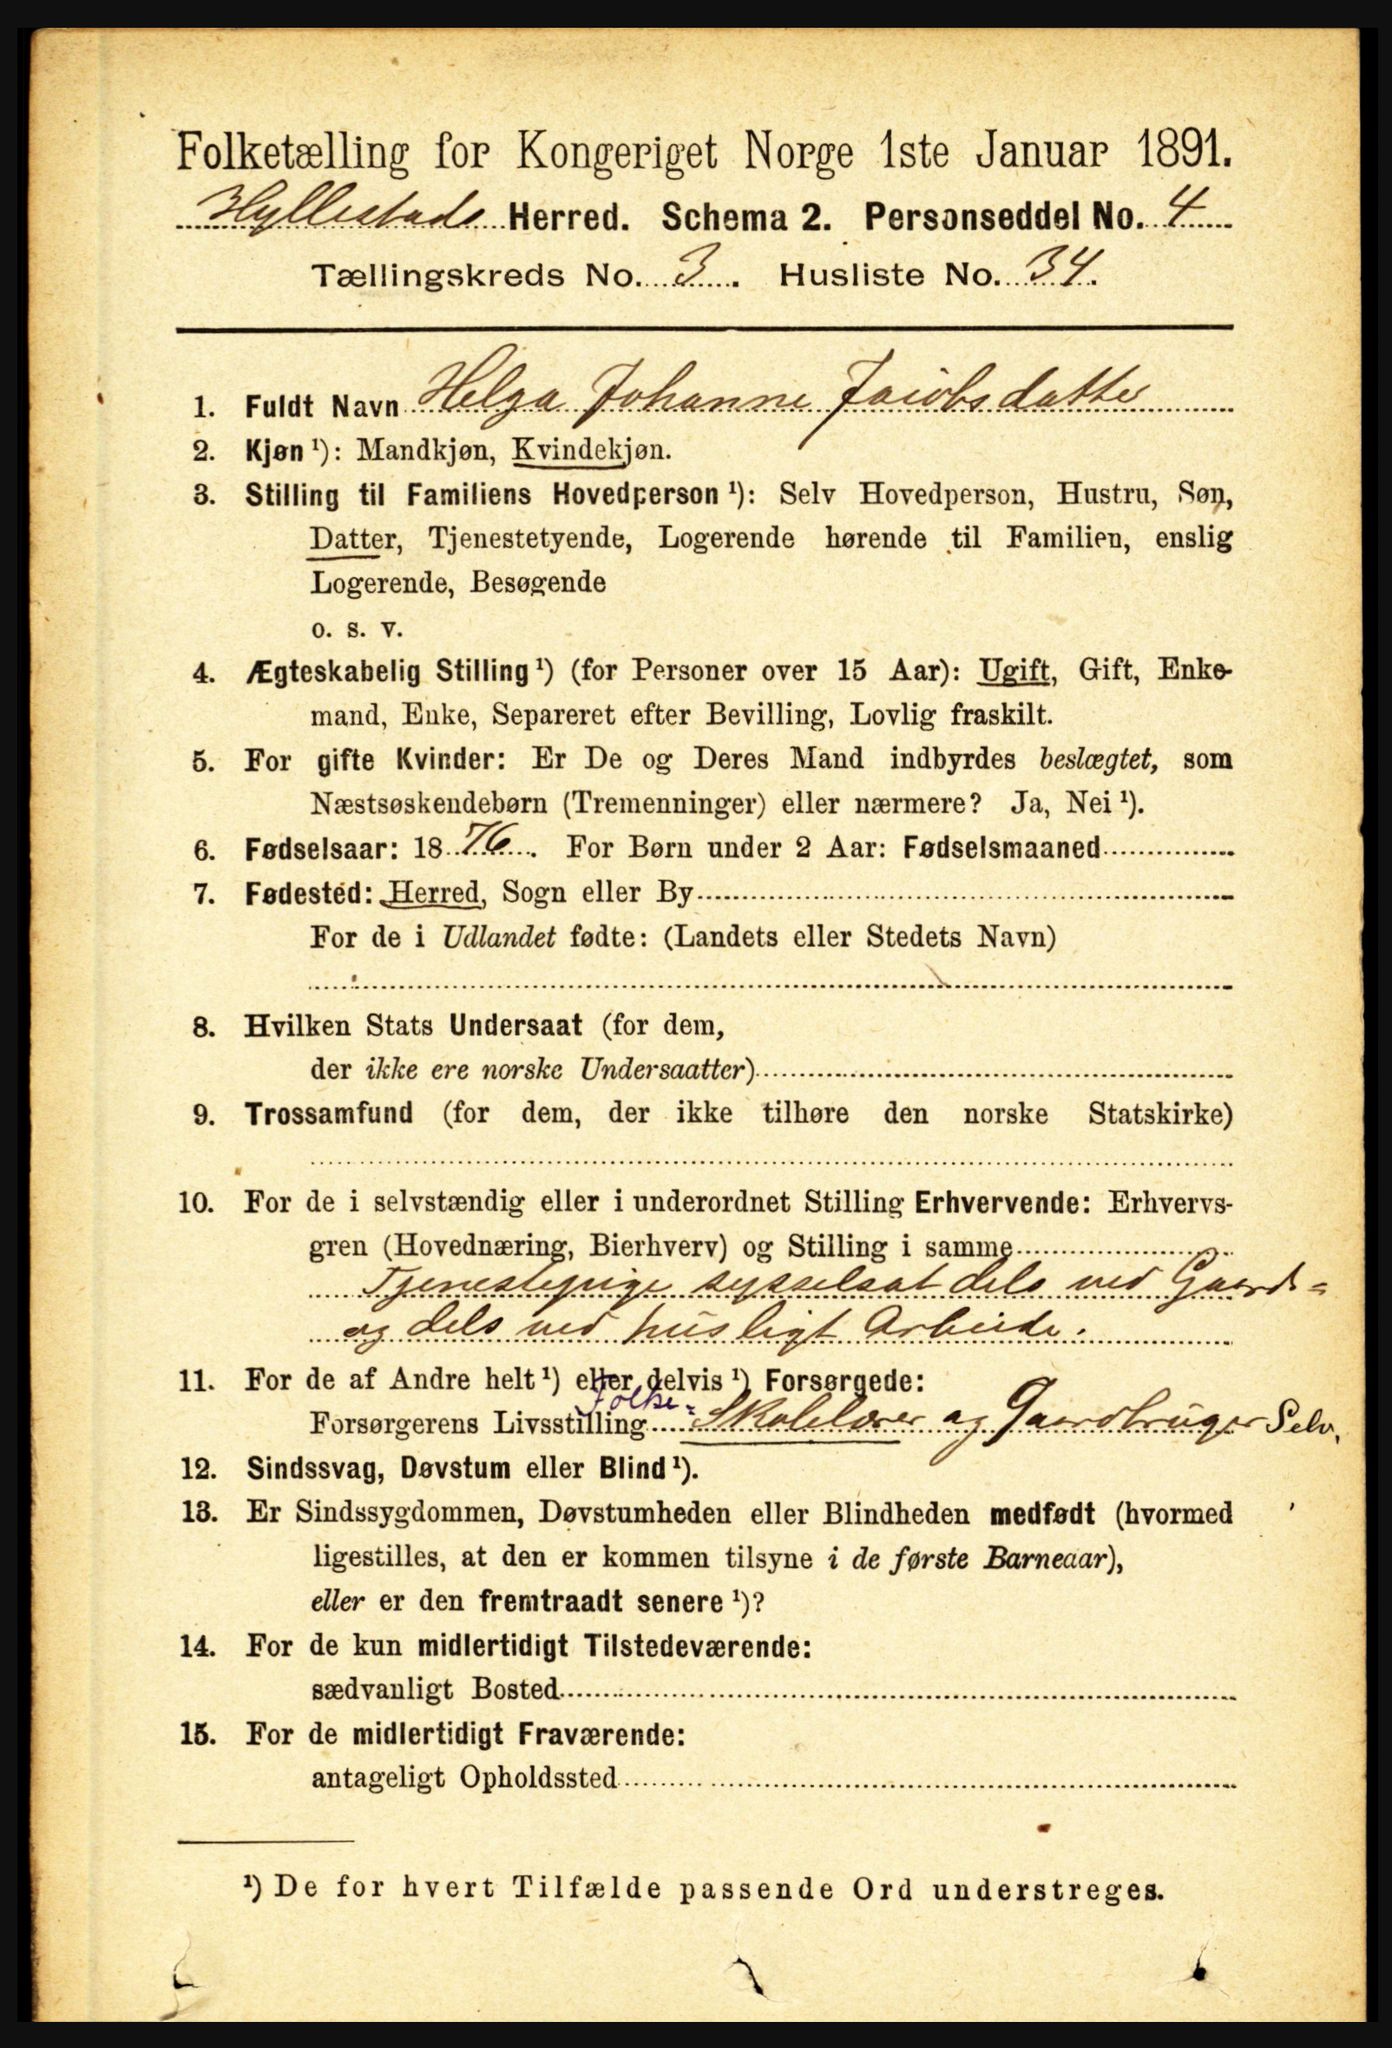 Folketælling for Kongeriget Norge 1ste Januar 1891.
Hyllestads Herred. Schema 2. Personseddel No. 4
Tællingskreds No. 3. Husliste No. 34.
1. Fuldt Navn Helga Johanne Jacobsdatter
2. Kjøn ¹): Mandkjøn, Kvindekjøn.
3. Stilling til Familiens Hovedperson ¹): Selv Hovedperson, Hustru, Søn,
Datter, Tjenestetyende, Logerende hørende til Familien, enslig
Logerende, Besøgende
o. s. v.
4. Ægteskabelig Stilling ¹) (for Personer over 15 Aar): Ugift, Gift, Enke-
mand, Enke, Separeret efter Bevilling, Lovlig fraskilt.
5. For gifte Kvinder: Er De og Deres Mand indbyrdes beslægtet, som
Næstsøskendebørn (Tremenninger) eller nærmere? Ja, Nei ¹).
6. Fødselsaar: 1876. For Børn under 2 Aar: Fødselsmaaned
7. Fødested: Herred, Sogn eller By
For de i Udlandet fødte: (Landets eller Stedets Navn)
8. Hvilken Stats Undersaat (for dem,
der ikke ere norske Undersaatter)
9. Trossamfund (for dem, der ikke tilhøre den norske Statskirke)
10. For de i selvstændig eller i underordnet Stilling Erhvervende: Erhvervs-
gren (Hovednæring, Bierhverv) og Stilling i samme
Tjenestepige sysselsat dels ved Gaards-
og dels ved husligt Arbeide.
11. For de af Andre helt ¹) eller delvis ¹) Forsørgede:
Forsørgerens Livsstilling Folke-Skolelærer og Gaardbruger Selv.
12. Sindssvag, Døvstum eller Blind ¹).
13. Er Sindssygdommen, Døvstumheden eller Blindheden medfødt (hvormed
ligestilles, at den er kommen tilsyne i de første Barneaar),
eller er den fremtraadt senere ¹)?
14. For de kun midlertidigt Tilstedeværende:
sædvanligt Bosted
15. For de midlertidigt Fraværende:
antageligt Opholdssted
¹) De for hvert Tilfælde passende Ord understreges.